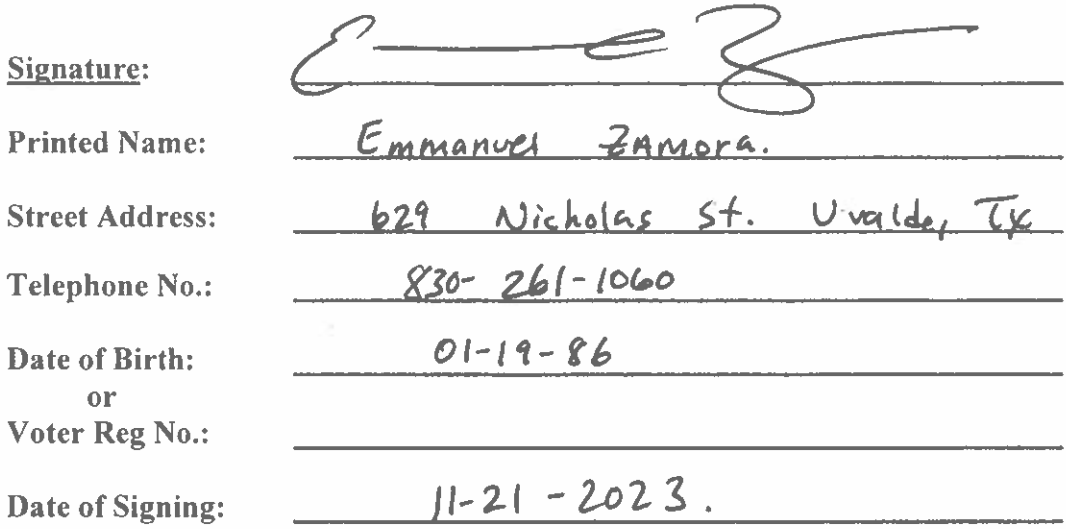 Signature:
Printed Name: Emmanuel ZAMora.
Street Address: 629 Nicholas St. Uvalde, Tx
Telephone No.: 830-261-1060
Date of Birth: 01-19-86
or
Voter Reg No.:
Date of Signing: 11-21-2023.